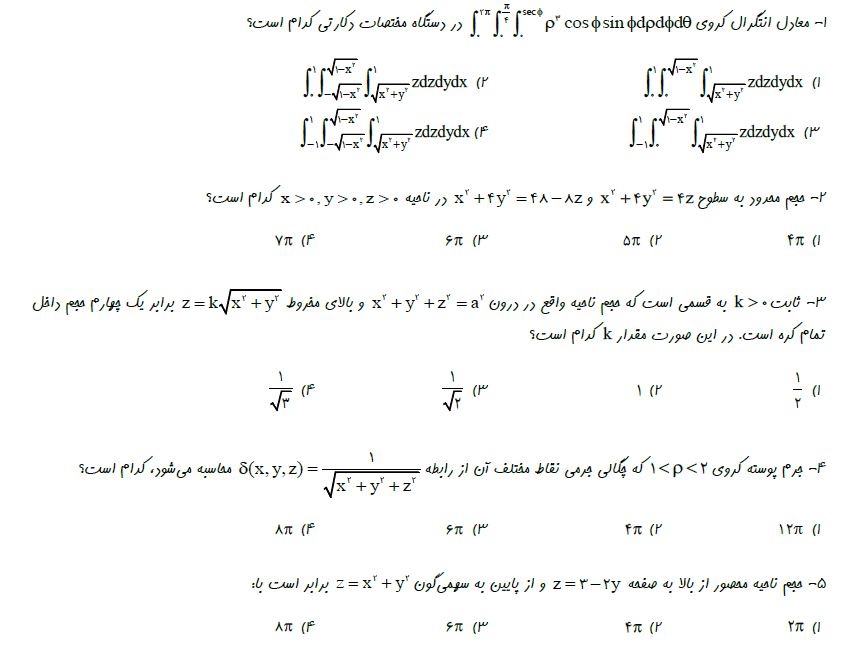 ۱- معادل انتگرال کروی ∫₀^{۲π} ∫₀^{π/۴} ∫₀^{secϕ} ρ^۳ cosϕ sinϕ dρdϕdθ در دستگاه مختصات دکارتی کدام است؟
۱) ∫₀^۱ ∫₀^{√(۱−x^۲)} ∫_{√(x^۲+y^۲)}^۱ zdzdydx ۲) ∫₀^۱ ∫_{−√(۱−x^۲)}^{√(۱−x^۲)} ∫_{√(x^۲+y^۲)}^۱ zdzdydx
۳) ∫_{−۱}^۱ ∫₀^{√(۱−x^۲)} ∫_{√(x^۲+y^۲)}^۱ zdzdydx ۴) ∫_{−۱}^۱ ∫_{−√(۱−x^۲)}^{√(۱−x^۲)} ∫_{√(x^۲+y^۲)}^۱ zdzdydx
۲- حجم محدود به سطوح x^۲ + ۴y^۲ = ۴z و x^۲ + ۴y^۲ = ۴۸ − ۸z در ناحیه x > ۰, y > ۰, z > ۰ کدام است؟
۱) ۴π ۲) ۵π ۳) ۶π ۴) ۷π
۳- ثابت k > ۰ به قسمی است که حجم ناحیه واقع در درون x^۲ + y^۲ + z^۲ = a^۲ و بالای مخروط z = k√(x^۲ + y^۲) برابر یک چهارم حجم داخل
تمام کره است. در این صورت مقدار k کدام است؟
۱) ۱/۲ ۲) ۱ ۳) ۱/√۲ ۴) ۱/√۳
۴- جرم پوسته کروی ۱ < ρ < ۲ که چگالی جرمی نقاط مختلف آن از رابطه δ(x, y, z) = ۱/√(x^۲ + y^۲ + z^۲) محاسبه می‌شود، کدام است؟
۱) ۱۲π ۲) ۴π ۳) ۶π ۴) ۸π
۵- حجم ناحیه محصور از بالا به صفحه z = ۳ − ۲y و از پایین به سهمی‌گون z = x^۲ + y^۲ برابر است با:
۱) ۲π ۲) ۴π ۳) ۶π ۴) ۸π